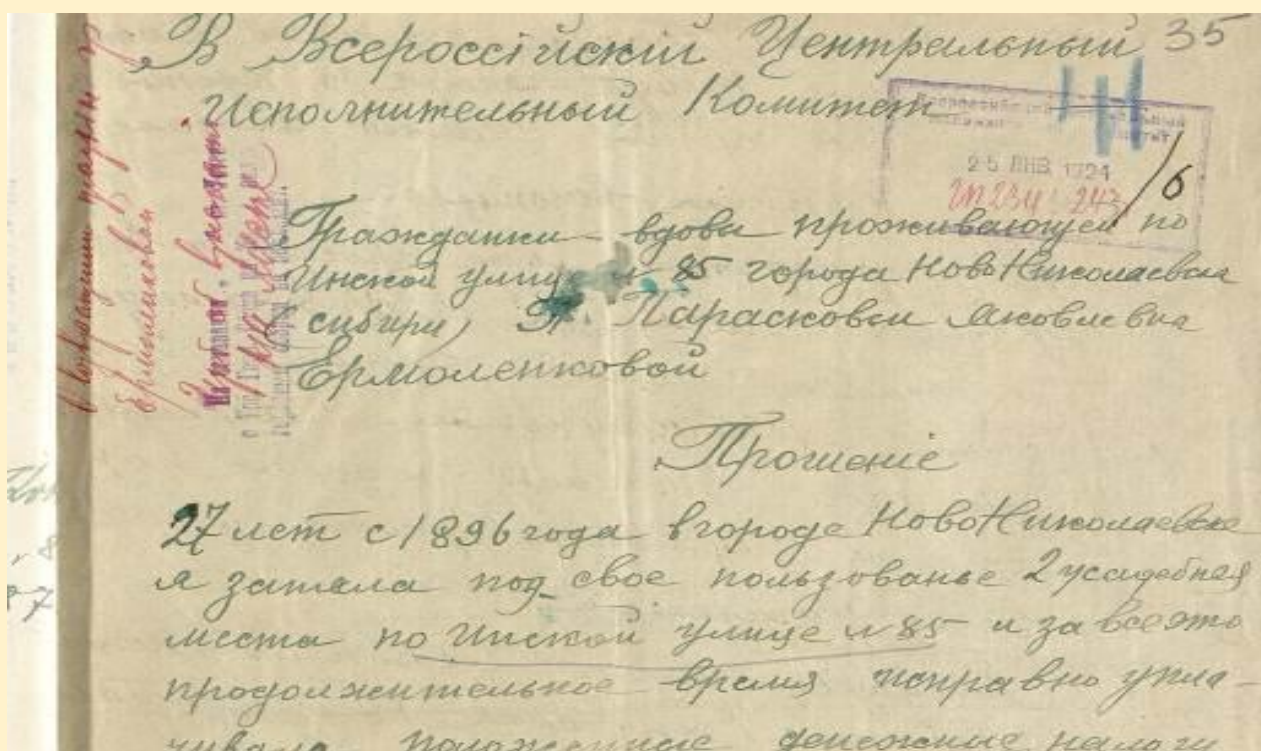 В Всероссійскій Центральный 35
Исполнительный Комитет
25 ЯНВ. 1924
/6
Гражданки – вдовы проживающей по
Инской улице № 85 города НовоНиколаевска
сибири, Парасковьи Яковлевна
Ермоленковой
Прошеніе
27 лет с 1896 года вгороде НовоНиколаевске
я заняла под свое пользованье 2 усадебная
места по Инской улице № 85 и за все это
продолжительное время исправно упла-
чивала положенные денежные налоги